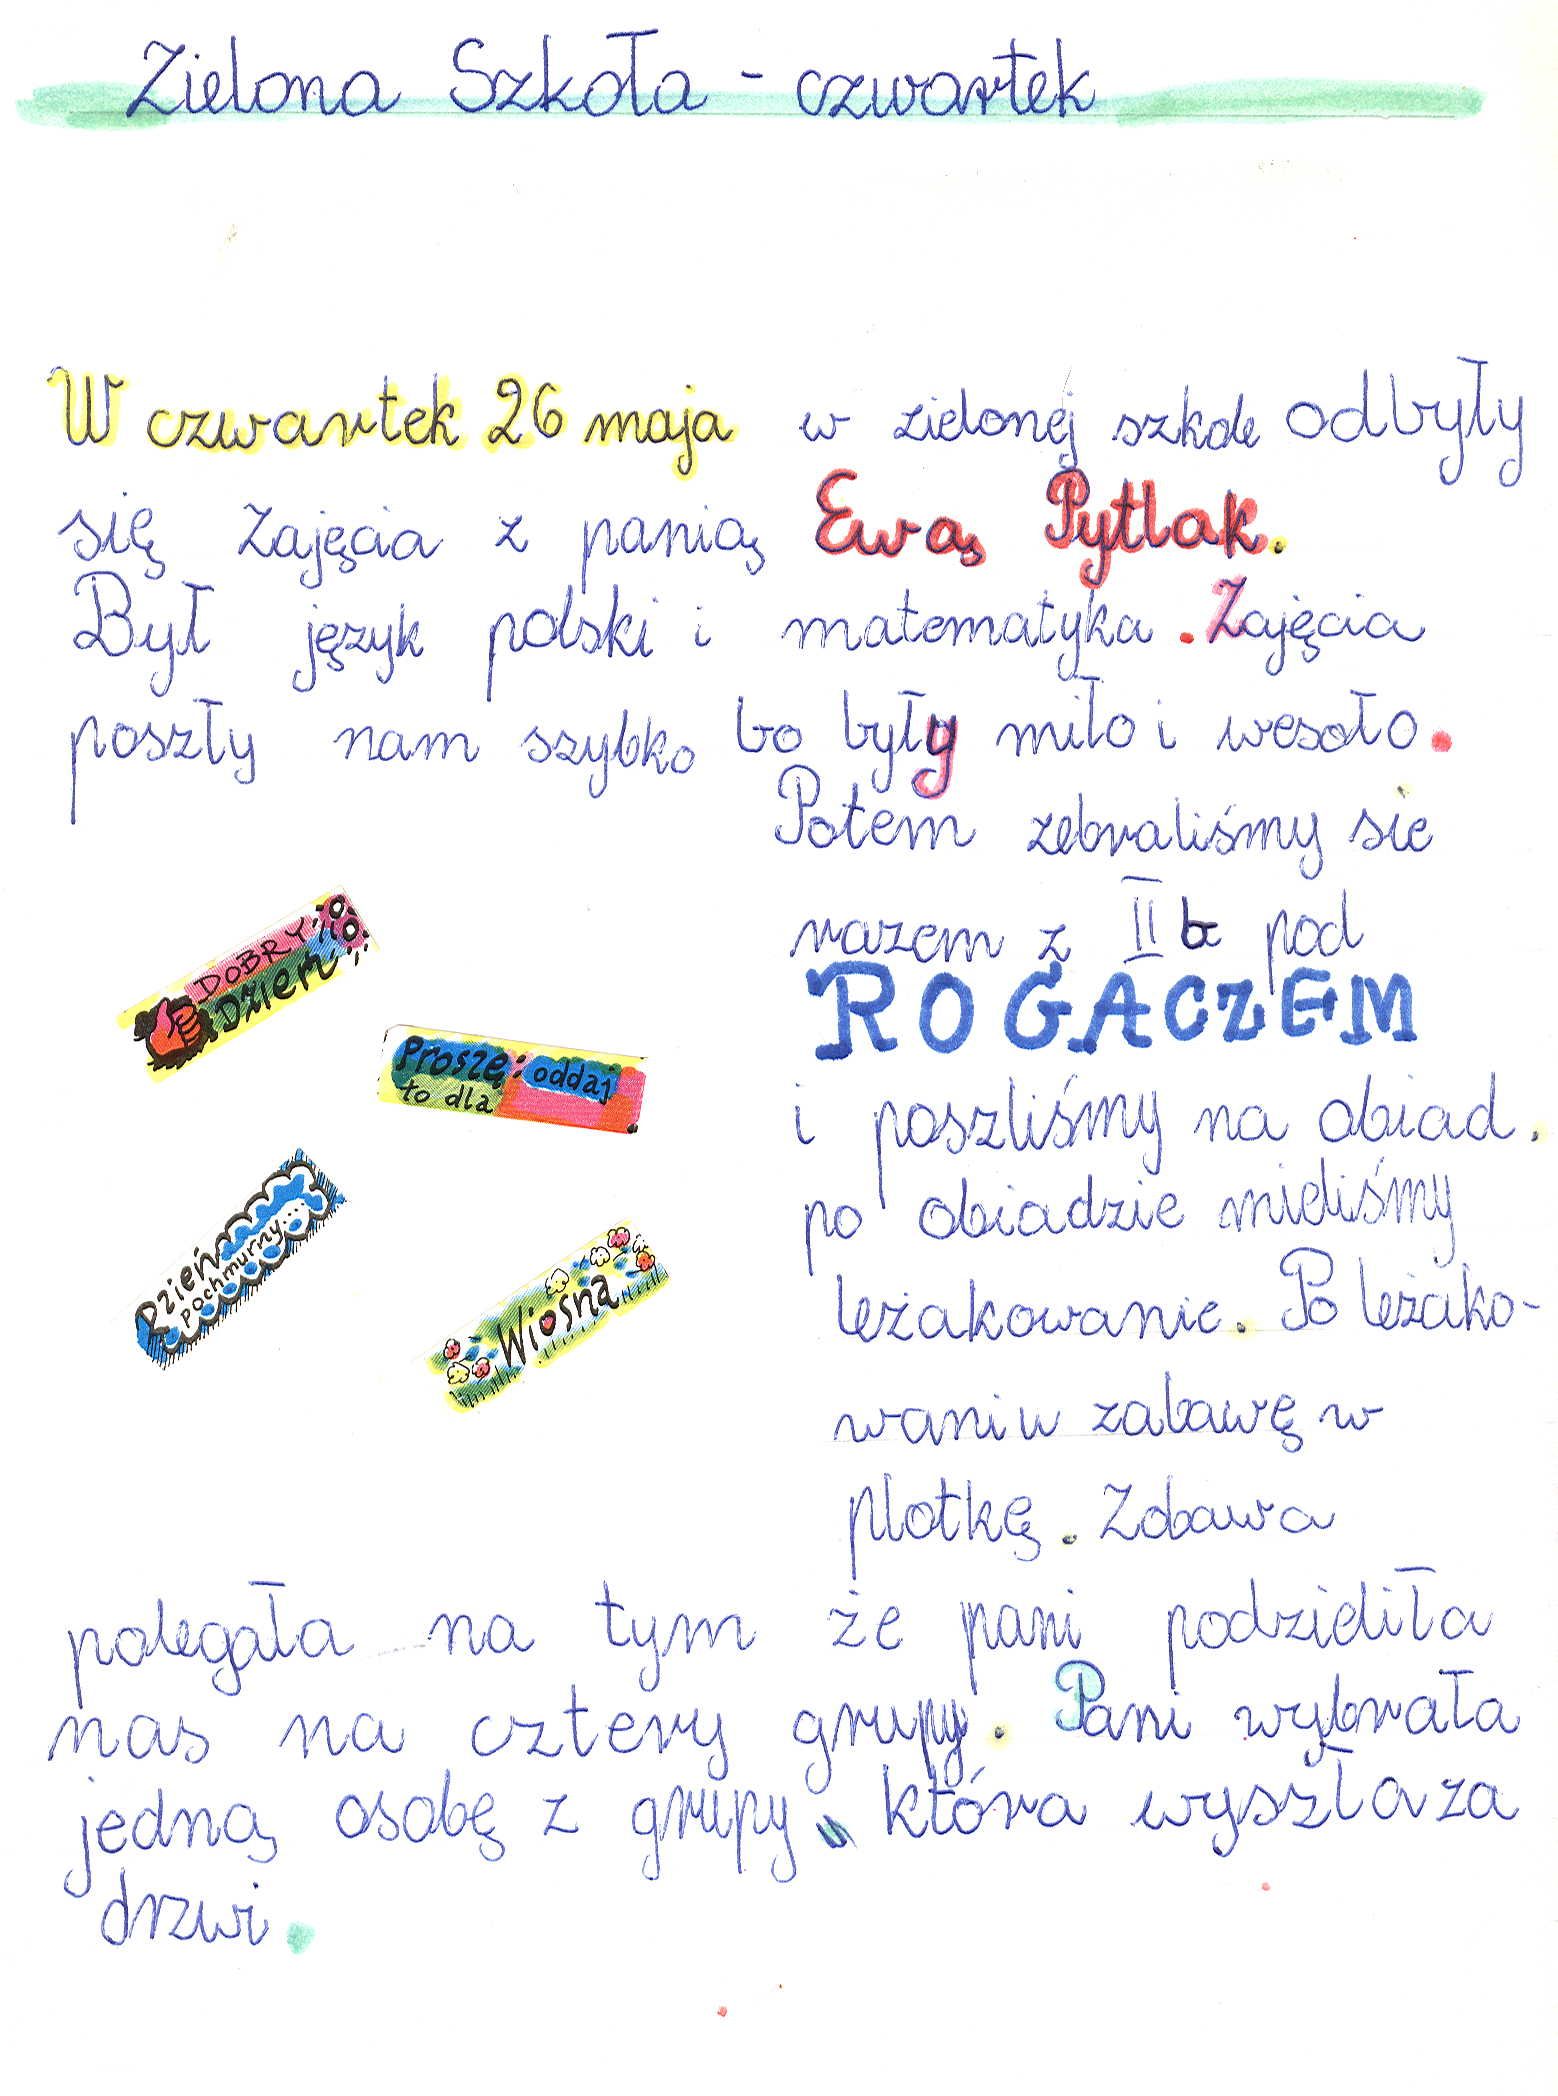 Zielona Szkoła - czwartek
W czwartek 26 maja w zielonej szkole odbyły
się Zajęcia z panią Ewą Pytlak.
Był język polski i matematyka. Zajęcia
poszły nam szybko bo były miło i wesoło.
Potem zebraliśmy sie
razem z II b pod
ROGACZEM
i poszliśmy na obiad.
po obiadzie mieliśmy
leżakowanie. Po leżako-
waniu zabawę w
plotkę. Zabawa
DOBRY
Dzień
Proszę: oddaj
to dla
Dzień
pochmurny...
Wiosna
polegała na tym że pani podzieliła
nas na cztery grupy. Pani wybrała
jedną osobę z grupy, która wyszła za
drzwi.